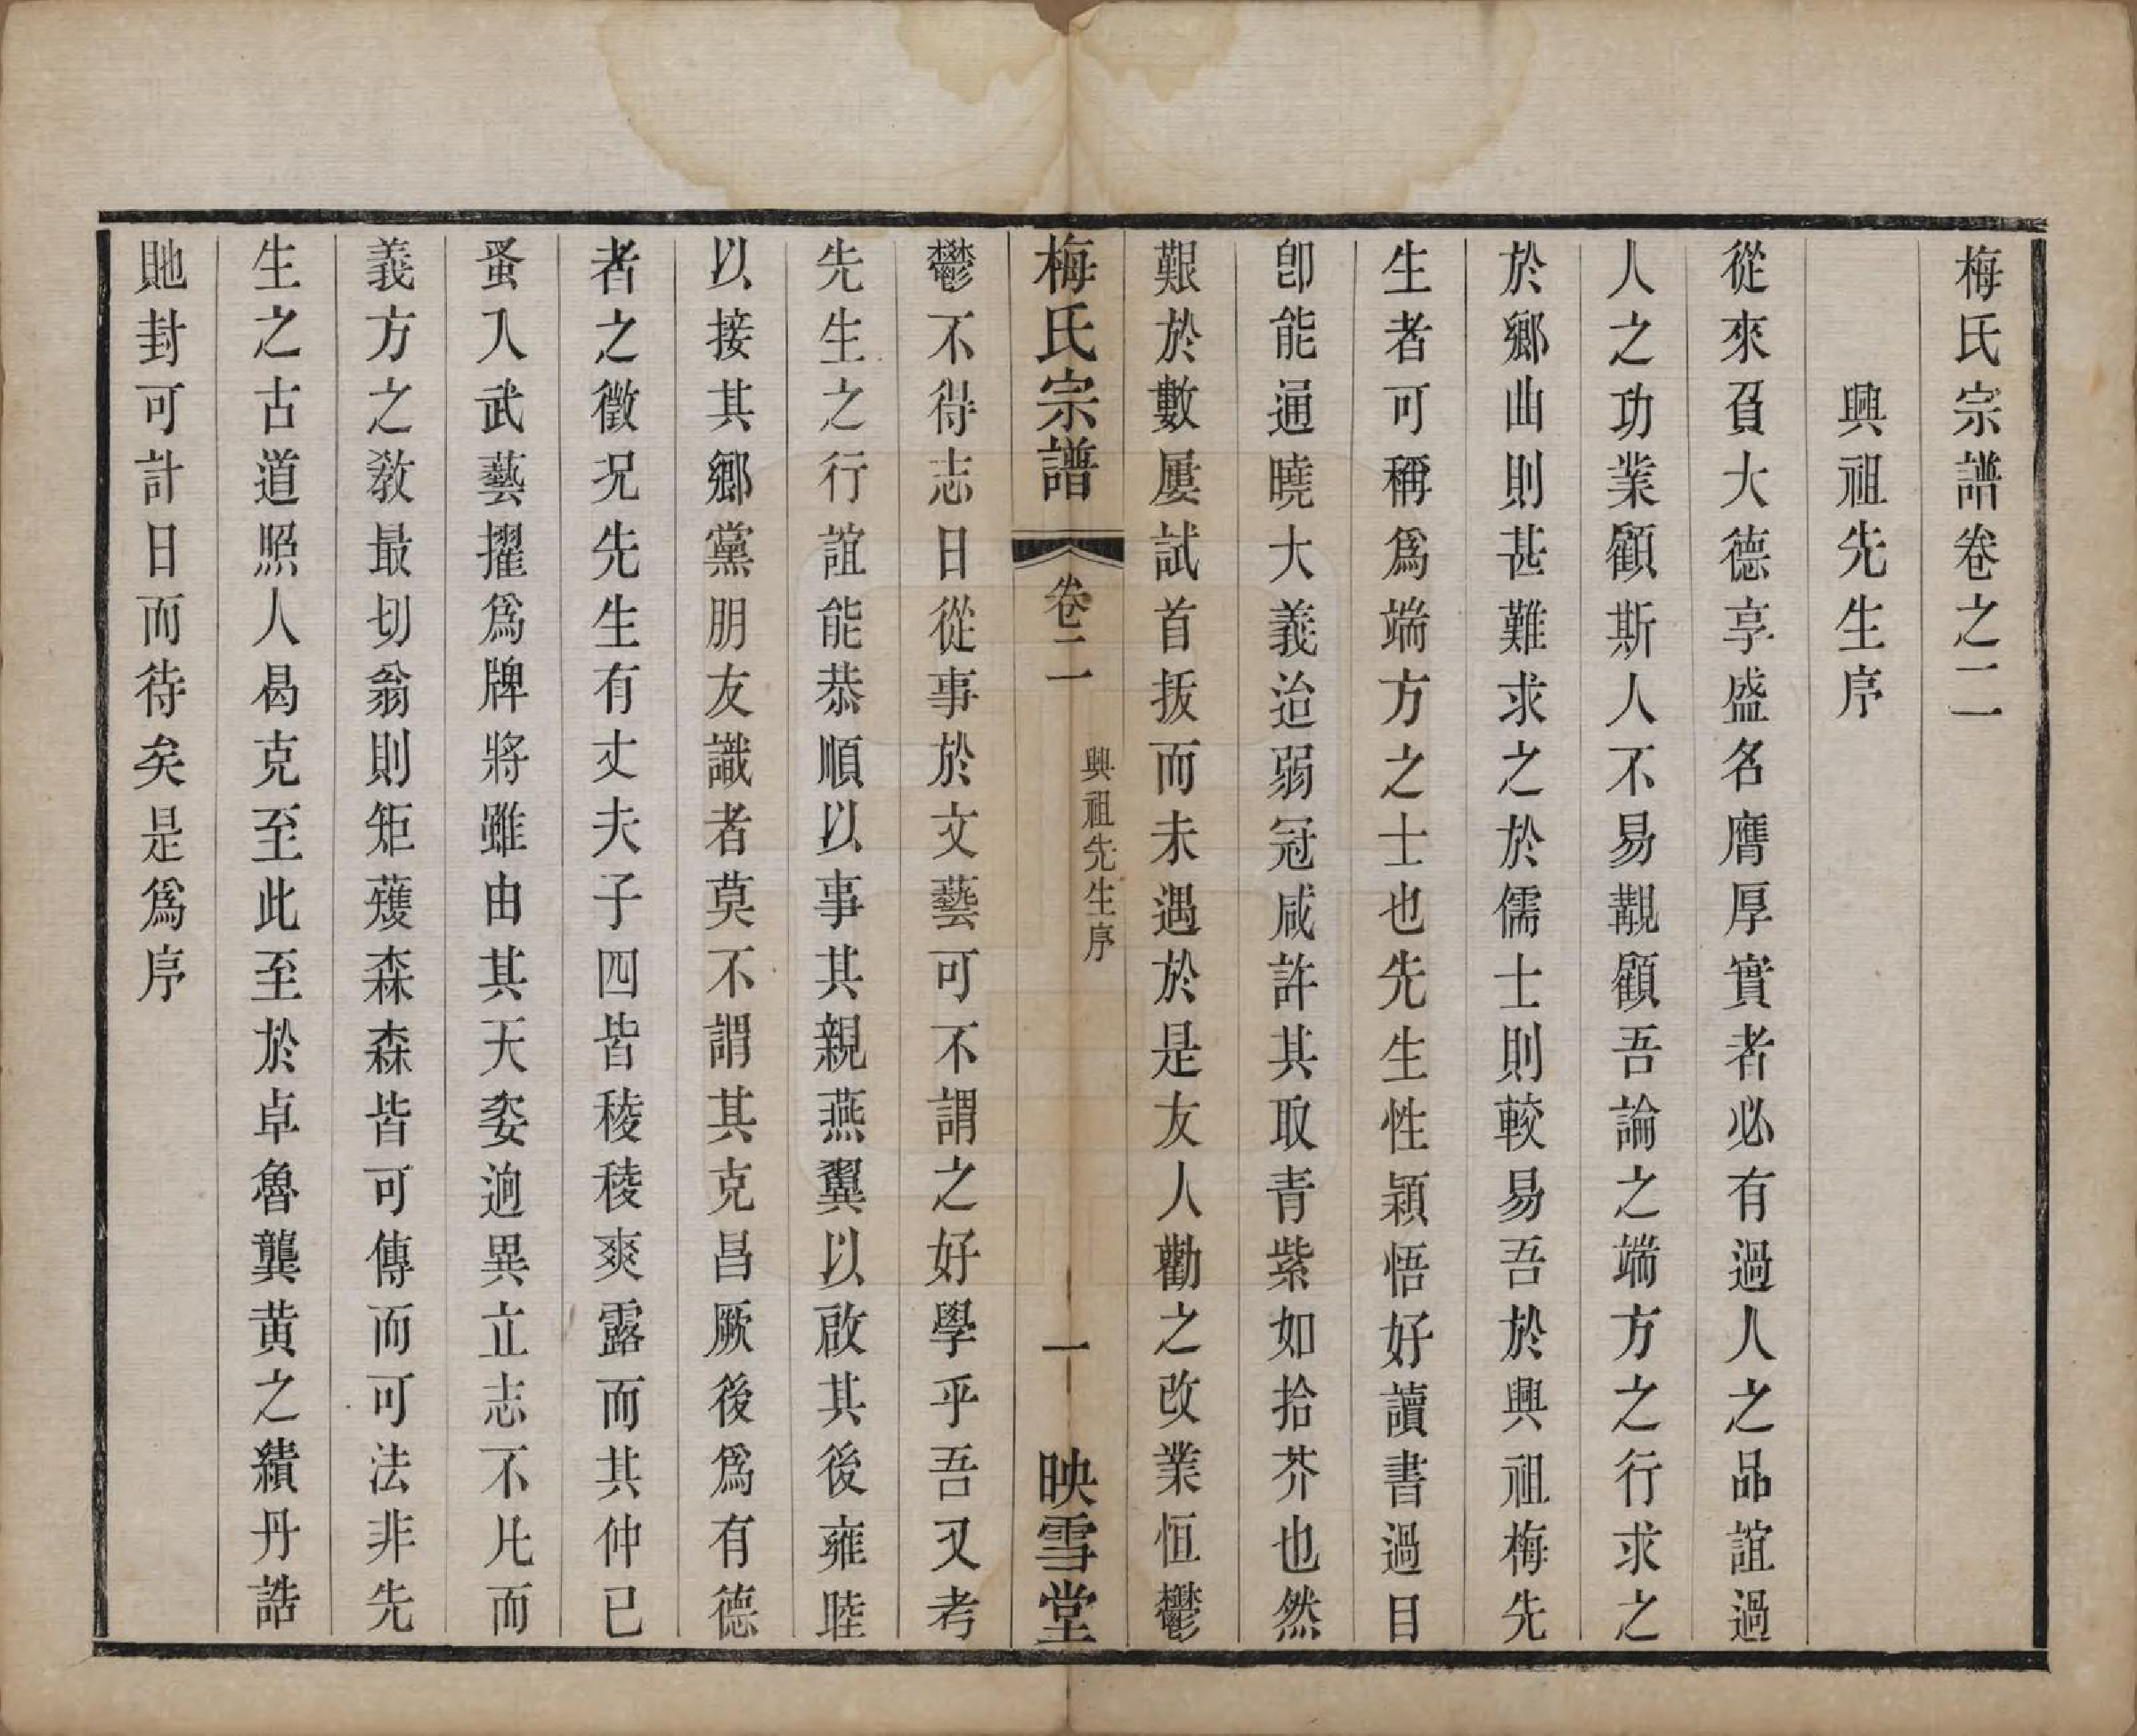 梅氏宗譜卷之二
興祖先生序
從來負大德享盛名膺厚實者必有過人之品誼過
人之功業顧斯人不易覯顧吾論之端方之行求之
於鄉曲則甚難求之於儒士則較易吾於興祖梅先
生者可稱爲端方之士也先生性穎悟好讀書過目
卽能通曉大義迨弱冠咸許其取青紫如拾芥也然
艱於數屢試首拔而未遇於是友人勸之改業恒鬱
梅氏宗譜 卷二 興祖先生序 一 映雪堂
鬱不得志日從事於文藝可不謂之好學乎吾又考
先生之行誼能恭順以事其親燕翼以啟其後雍睦
以接其鄉黨朋友識者莫不謂其克昌厥後爲有德
者之徵況先生有丈夫子四皆稜稜爽露而其仲已
蚤入武藝擢爲牌將雖由其天姿迥異立志不凡而
義方之敎最切翁則矩矱森森皆可傳而可法非先
生之古道照人曷克至此至於卓魯龔黄之績丹誥
貤封可計日而待矣是爲序